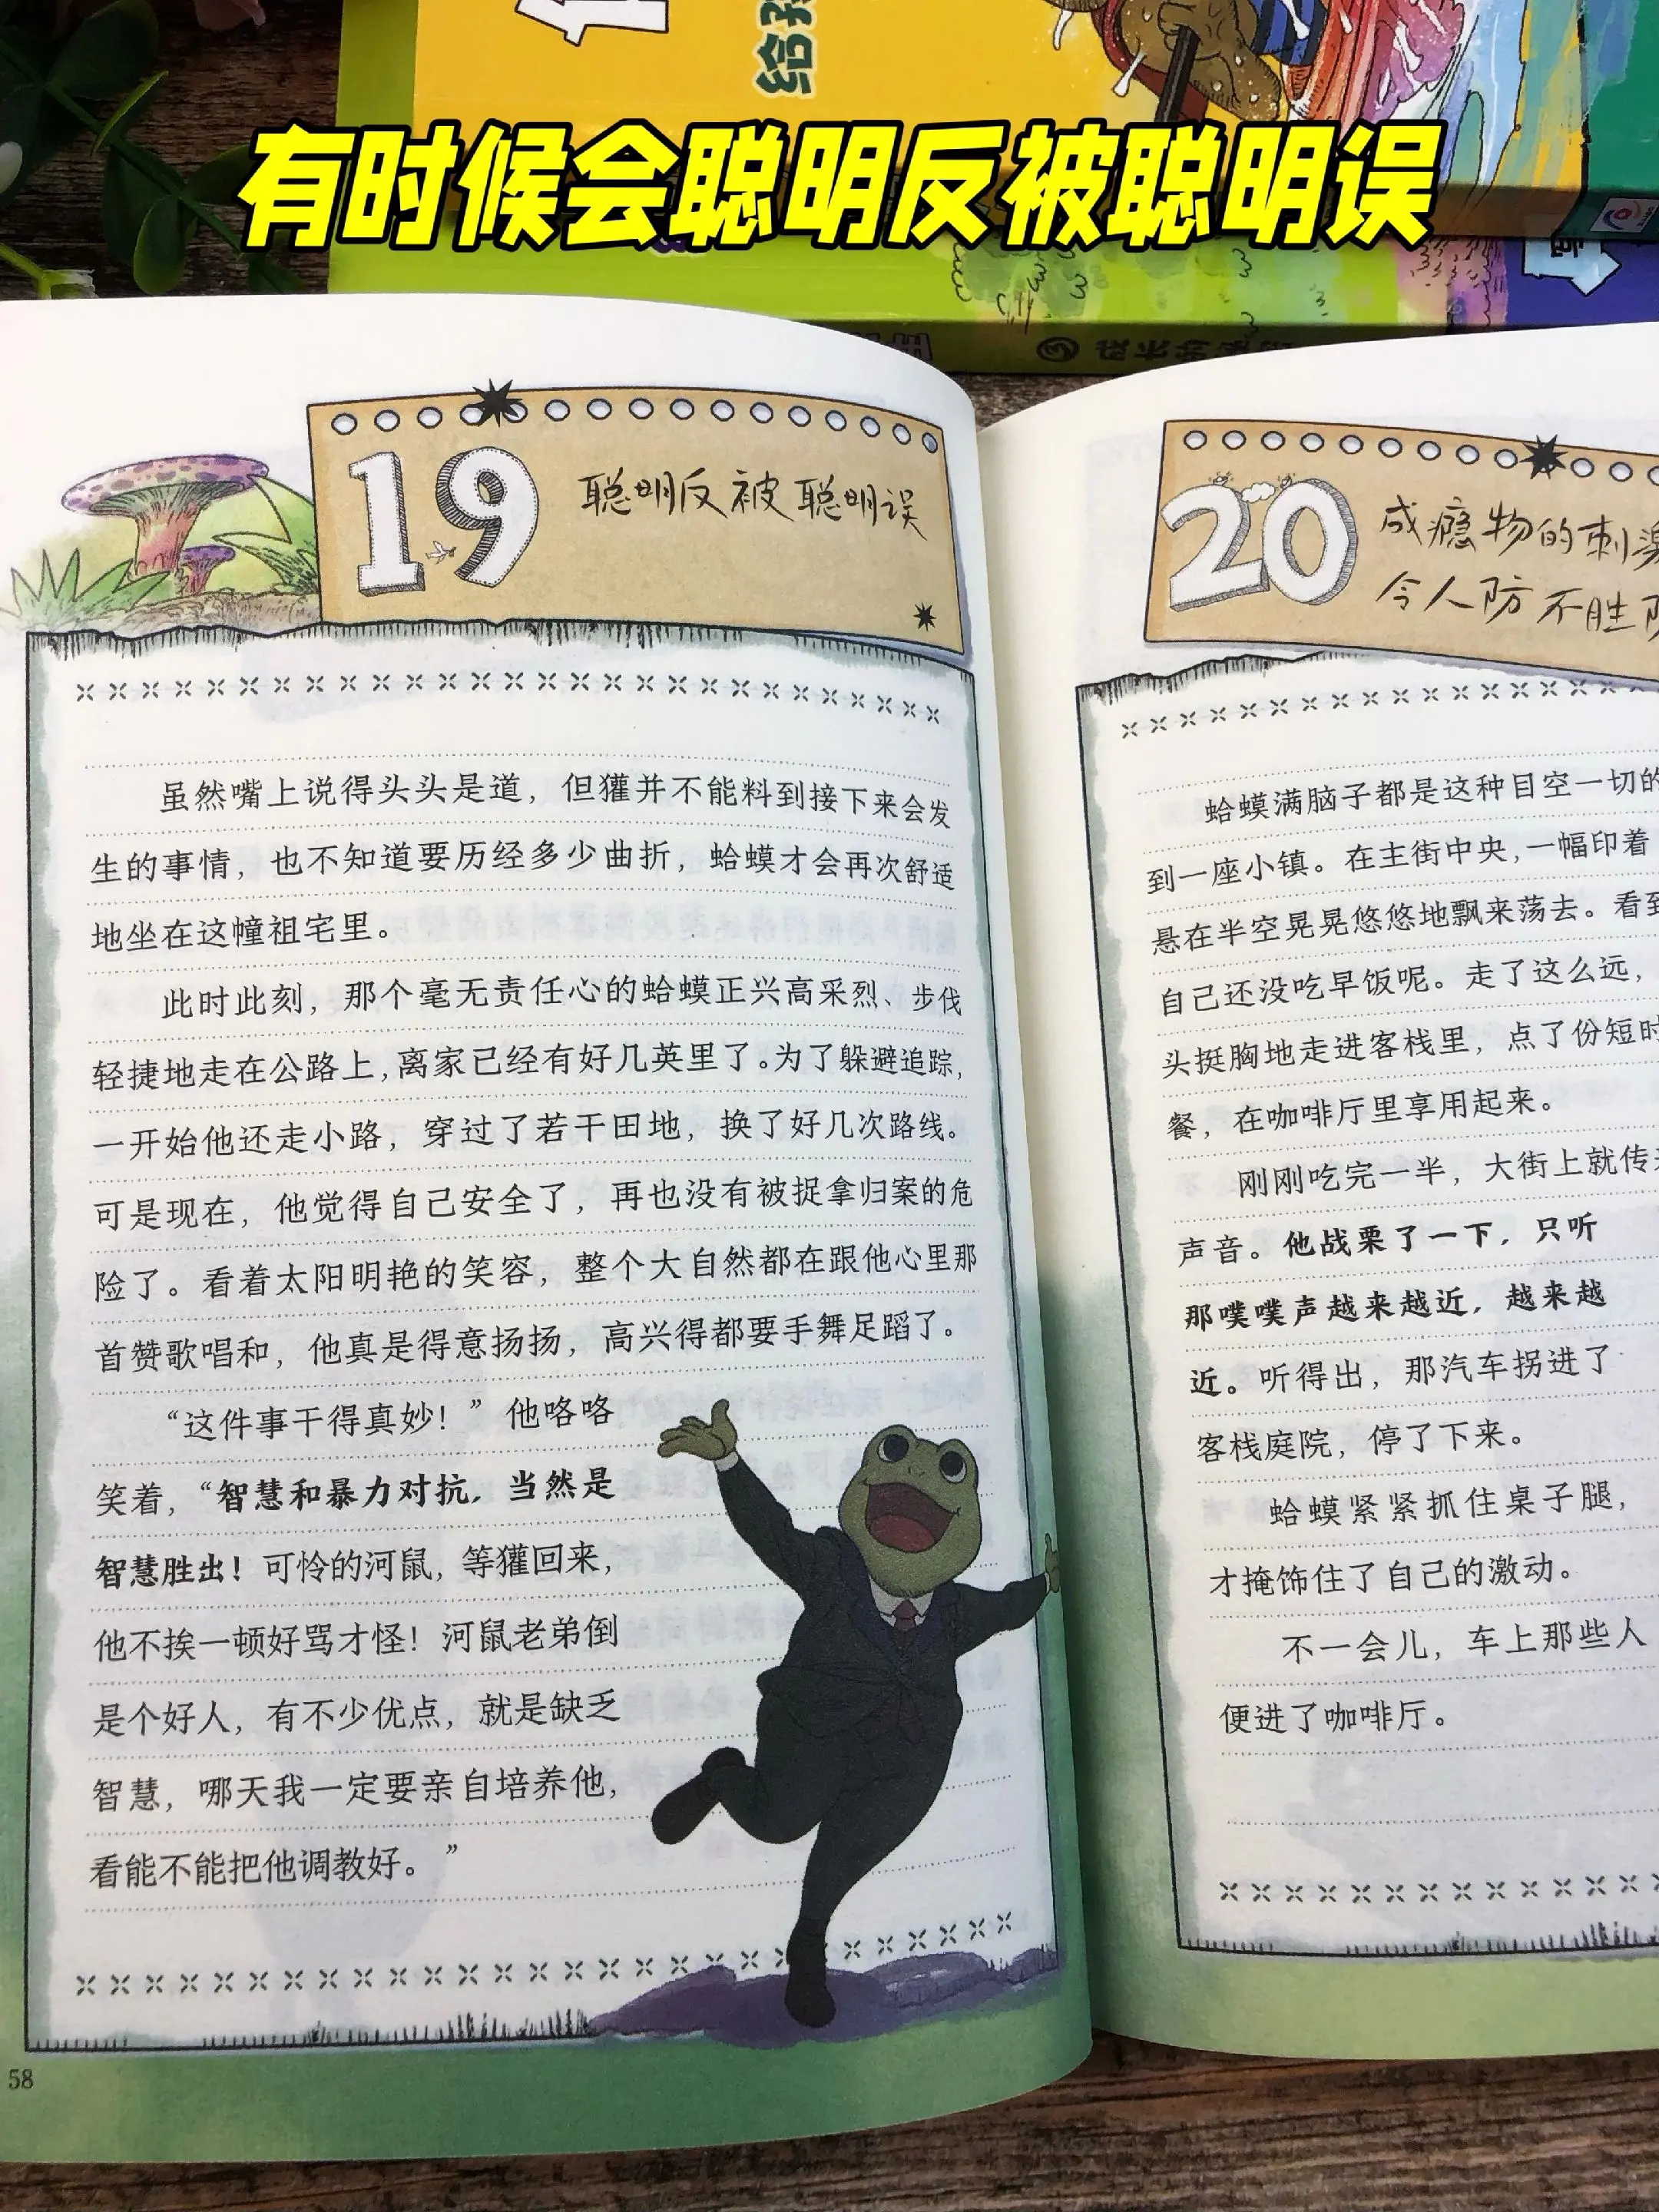 给
有时候会聪明反被聪明误
19
聪明反被聪明误
虽然嘴上说得头头是道，但獾并不能料到接下来会发
生的事情，也不知道要历经多少曲折，蛤蟆才会再次舒适
地坐在这幢祖宅里。
此时此刻，那个毫无责任心的蛤蟆正兴高采烈、步伐
轻捷地走在公路上，离家已经有好几英里了。为了躲避追踪，
一开始他还走小路，穿过了若干田地，换了好几次路线。
可是现在，他觉得自己安全了，再也没有被捉拿归案的危
险了。看着太阳明艳的笑容，整个大自然都在跟他心里那
首赞歌唱和，他真是得意扬扬，高兴得都要手舞足蹈了。
“这件事干得真妙！”他咯咯
笑着，“智慧和暴力对抗，当然是
智慧胜出！可怜的河鼠，等獾回来，
他不挨一顿好骂才怪！河鼠老弟倒
是个好人，有不少优点，就是缺乏
智慧，哪天我一定要亲自培养他，
看能不能把他调教好。”
58
20
成瘾物的刺
令人防不胜
蛤蟆满脑子都是这种目空一切的
到一座小镇。在主街中央，一幅印着
悬在半空晃晃悠悠地飘来荡去。看到
自己还没吃早饭呢。走了这么远，
头挺胸地走进客栈里，点了份短时
餐，在咖啡厅里享用起来。
刚刚吃完一半，大街上就传
声音。他战栗了一下，只听
那噗噗声越来越近，越来越
近。听得出，那汽车拐进了
客栈庭院，停了下来。
蛤蟆紧紧抓住桌子腿，
才掩饰住了自己的激动。
不一会儿，车上那些人
便进了咖啡厅。